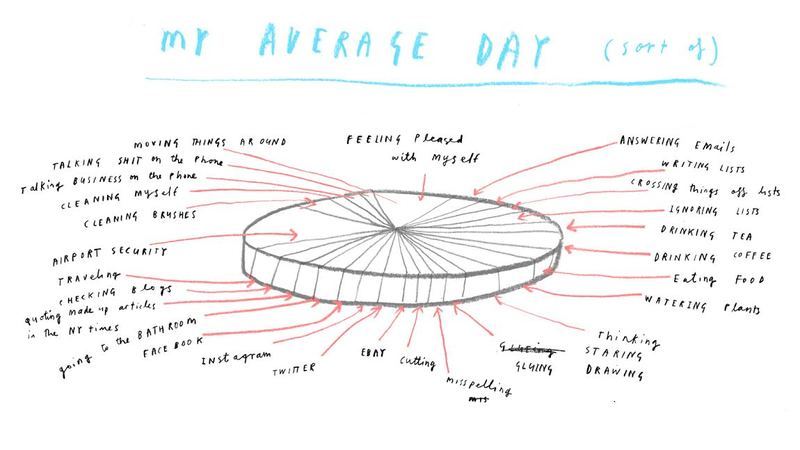 MY AVERAGE DAY (sort of)
MOVING THINGS AROUND
TALKING SHIT on the Phone
Talking BUSINESS on the Phone
CLEANING MYself
CLEANING BRUSHES
AIRPORT SECURITY
TRAVELING
CHECKING BLOGS
quoting made up articles
in the NY times
going to the BATHROOM
FACEBOOK
INStagram
TWITTER
EBAY
Cutting
misspelling
mis
GLUEING
GLUING
Thinking
STARING
DRAWING
WATERING Plants
Eating FOOD
DRINKING COFFEE
DRINKING TEA
IGNORING LISTS
CROSSING things off lists
WRITING LISTS
ANSWERING EMails
FEELING Pleased
with MYself